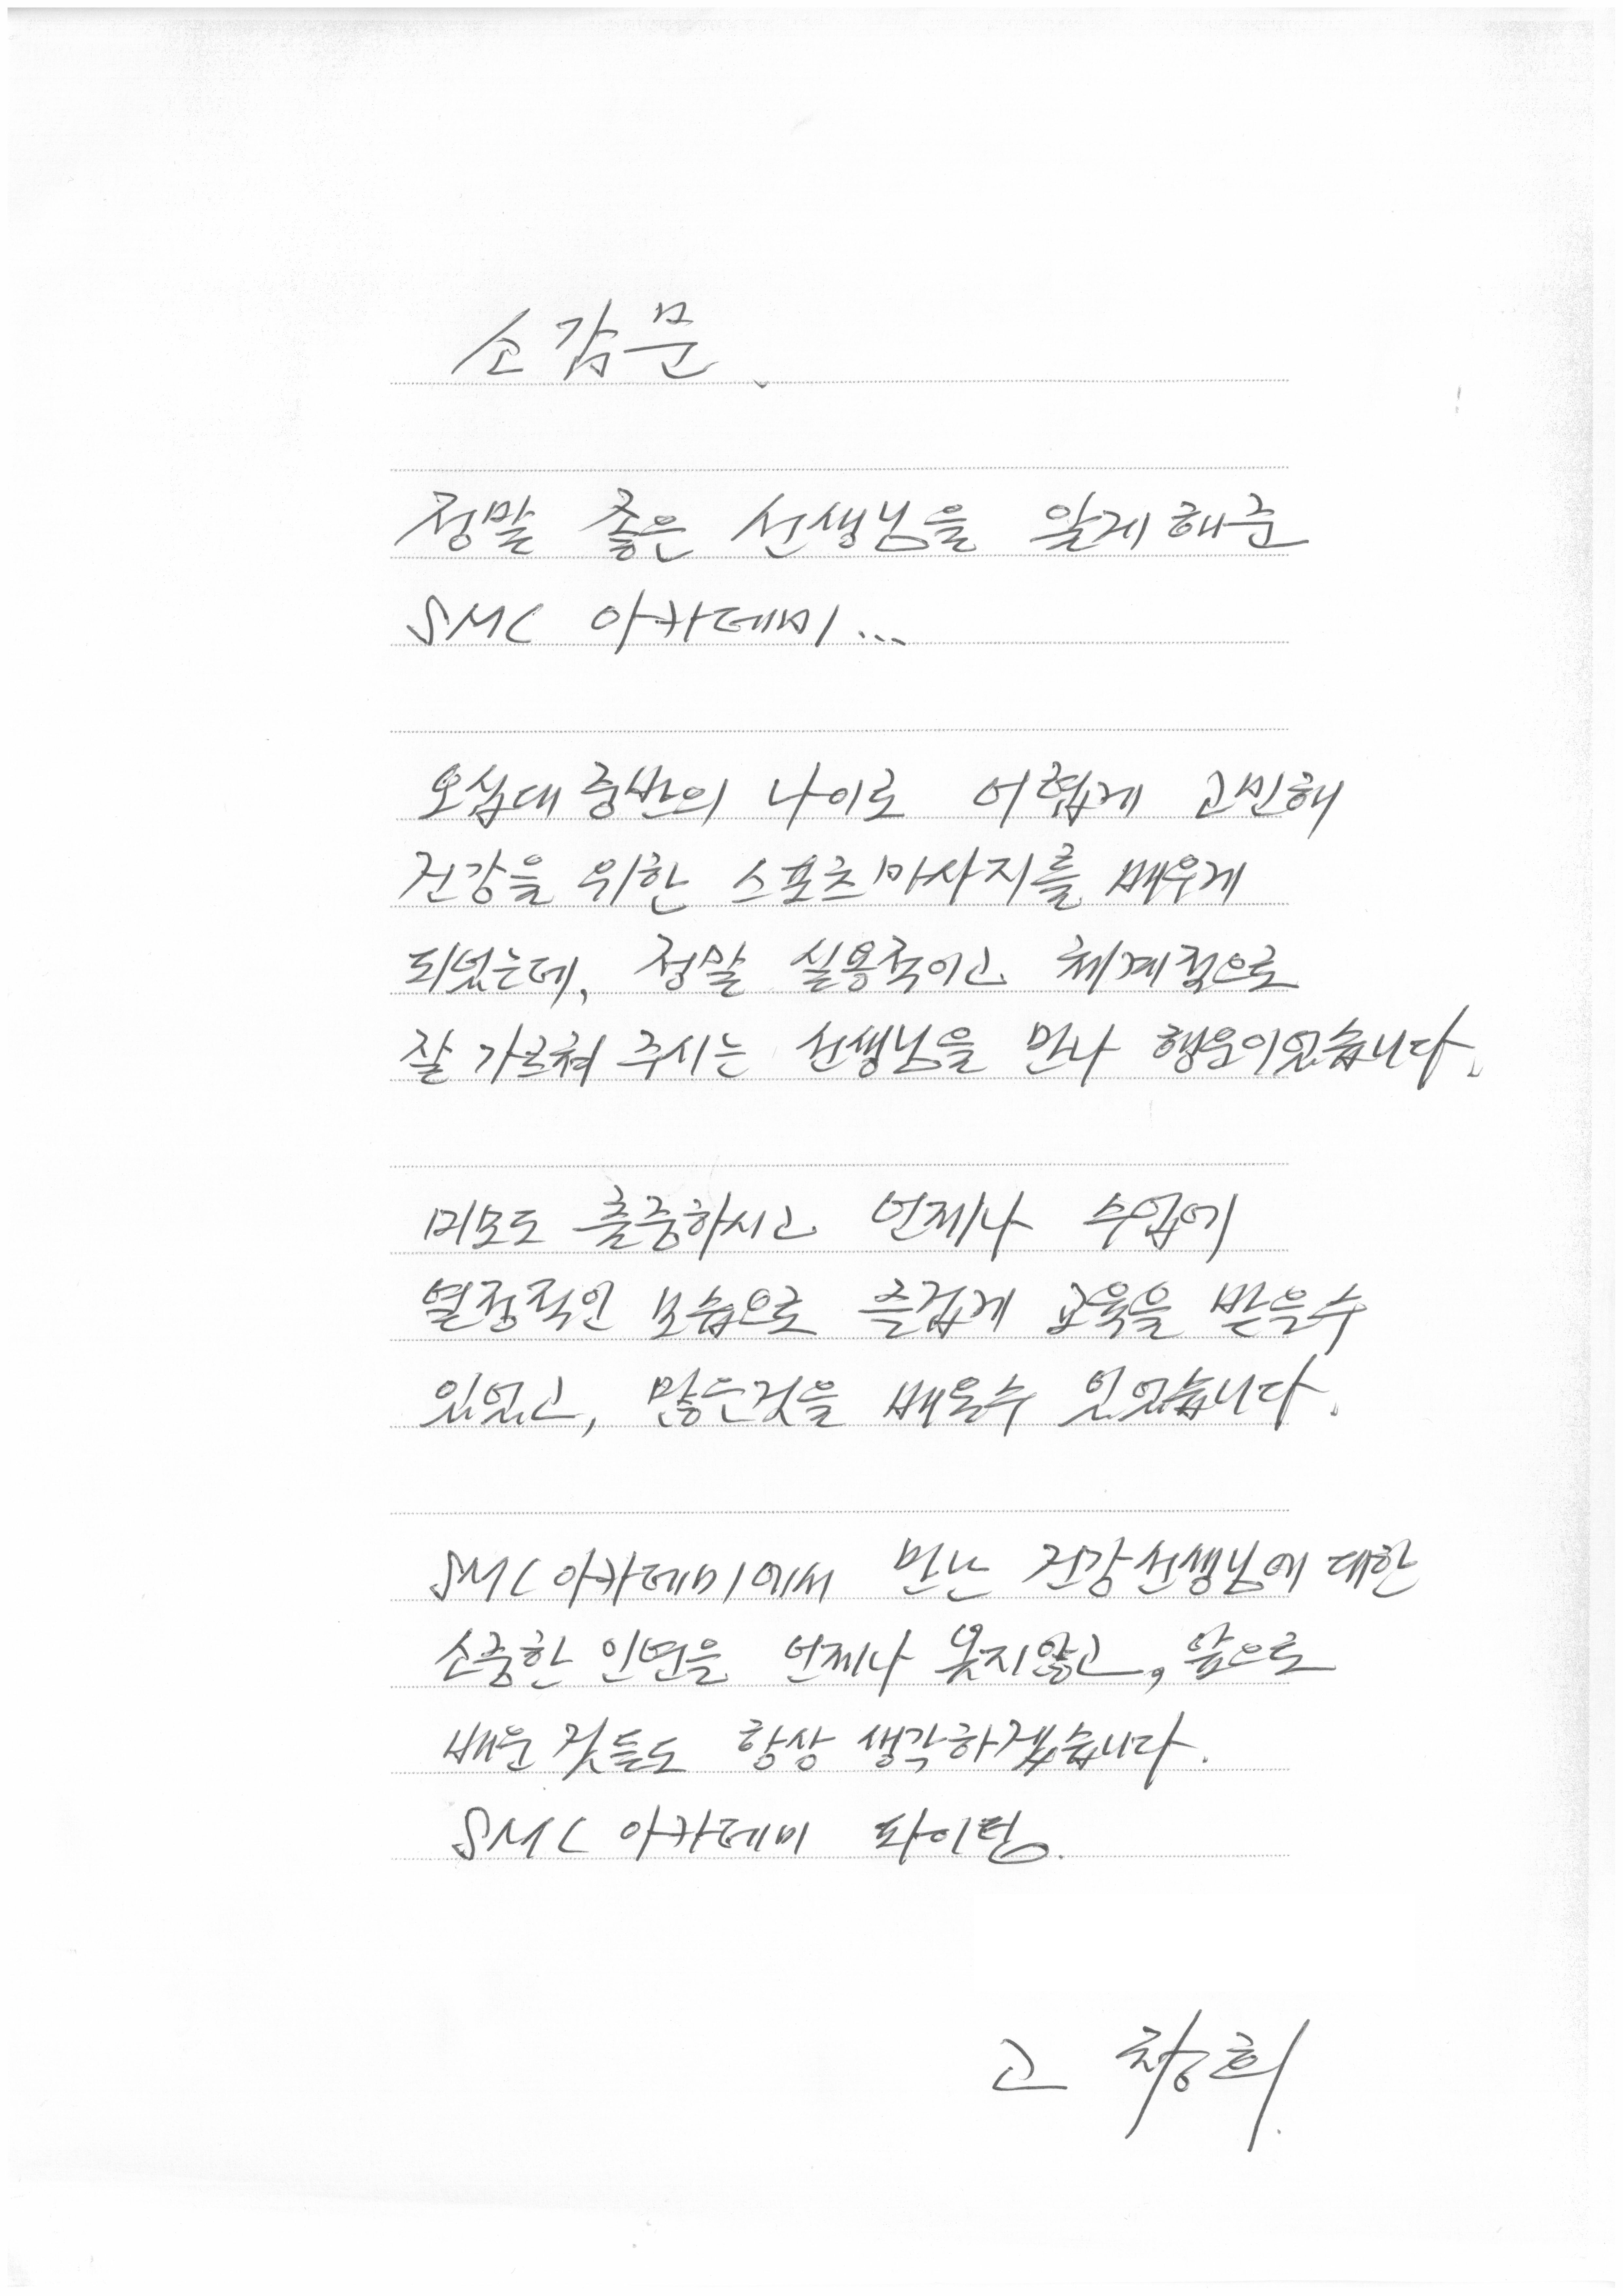 소감문.
정말 좋은 선생님을 알게해준
SMC 아카데미...
오십대 중반의 나이로 어렵게 고민해
건강을 위한 스포츠마사지를 배우게
되었는데, 정말 실용적이고 체계적으로
잘 가르쳐 주시는 선생님을 만나 행운이었습니다.
미모도 출중하시고 언제나 수업에
열정적인 모습으로 즐겁게 교육을 받을수
있었고, 많은것을 배울수 있었습니다.
SMC아카데미에서 만난 건강선생님에 대한
소중한 인연을 언제나 잊지않고, 앞으로
배운 것들도 항상 생각하겠습니다.
SMC 아카데미 화이팅.
고 창희